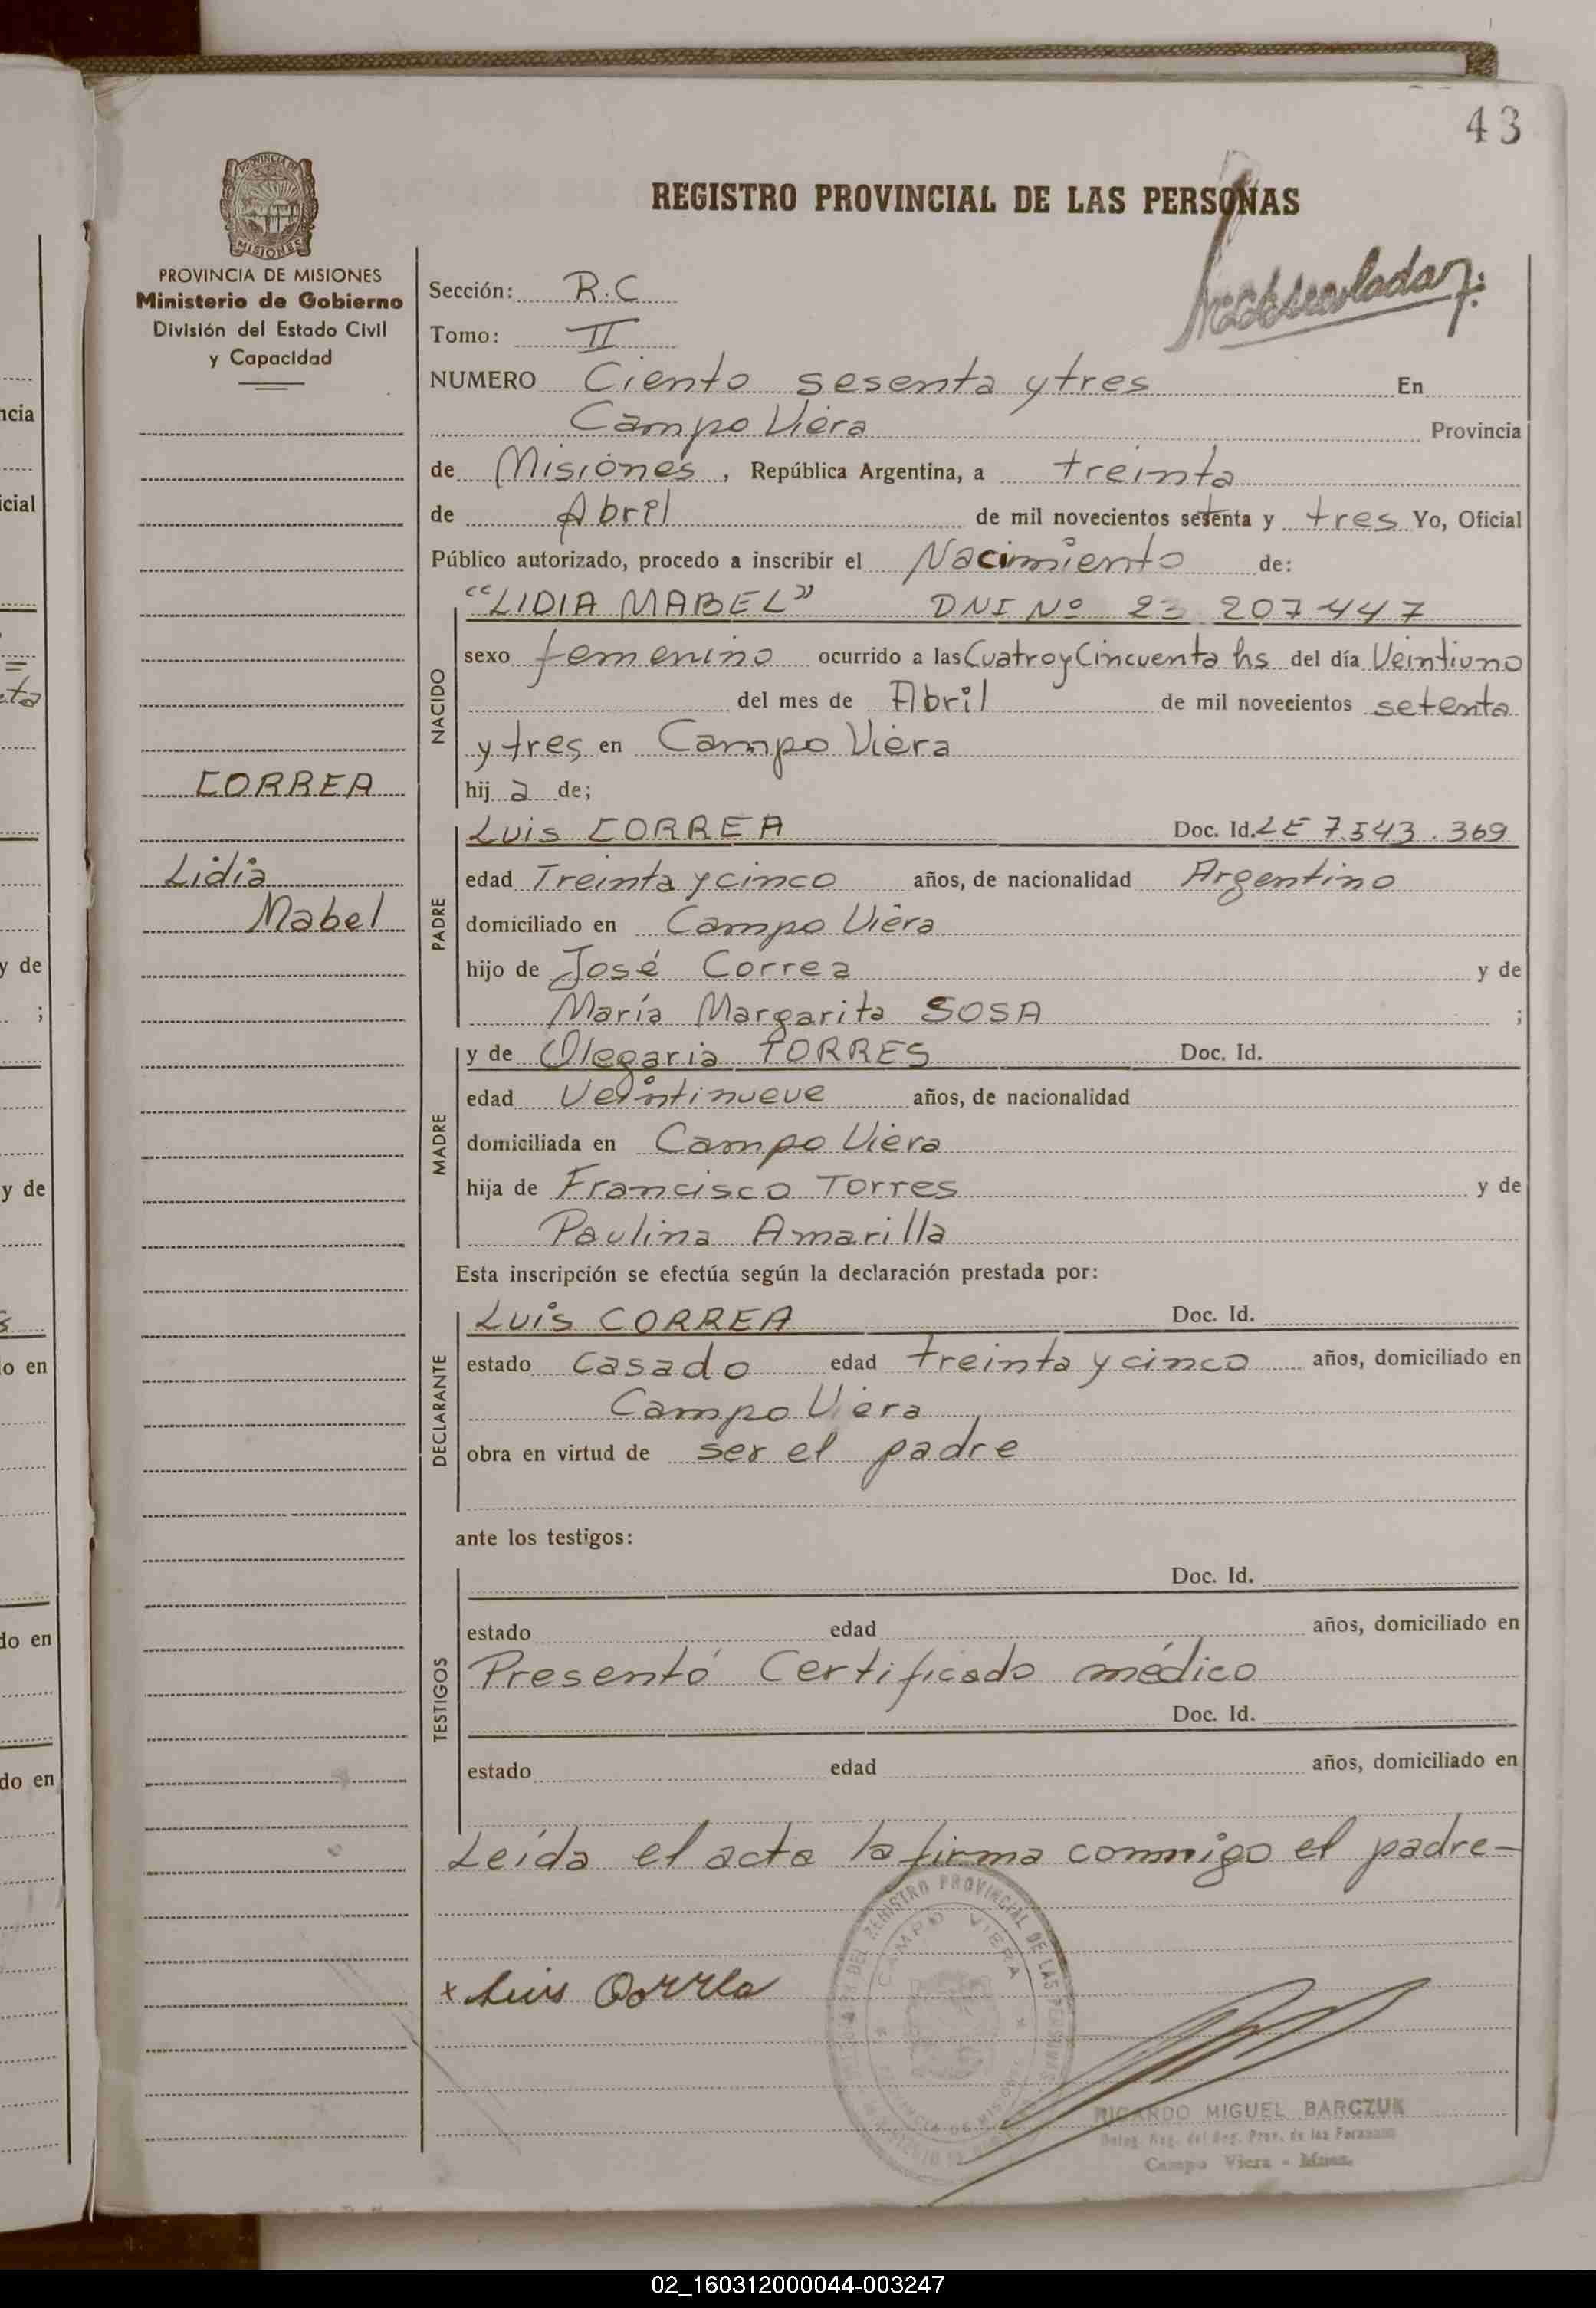 43
REGISTRO PROVINCIAL DE LAS PERSONAS
PROVINCIA DE MISIONES
Ministerio de Gobierno
División del Estado Civil
y Capacidad
Sección: R.C
Tomo: II
NUMERO Ciento sesenta y tres En
Campo Viera Provincia
de Misiones, República Argentina, a treinta
de Abril de mil novecientos setenta y tres Yo, Oficial
Público autorizado, procedo a inscribir el Nacimiento de:
NACIDO
"LIDIA MABEL" DNI Nº 23 207447
sexo femenino ocurrido a las Cuatro y Cincuenta hs del día Veintiuno
del mes de Abril de mil novecientos setenta
y tres en Campo Viera
hij a de;
CORREA
Lidia
Mabel
PADRE
Luis CORREA Doc. Id. LE 7.543.369
edad Treinta y cinco años, de nacionalidad Argentino
domiciliado en Campo Viera
hijo de José Correa y de
María Margarita SOSA ;
MADRE
y de Olegaria TORRES Doc. Id.
edad Veintinueve años, de nacionalidad
domiciliada en Campo Viera
hija de Francisco Torres y de
Paulina Amarilla
Esta inscripción se efectúa según la declaración prestada por:
DECLARANTE
Luis CORREA Doc. Id.
estado casado edad treinta y cinco años, domiciliado en
Campo Viera
obra en virtud de ser el padre
ante los testigos:
TESTIGOS
Doc. Id.
estado edad años, domiciliado en
Presentó Certificado médico
Doc. Id.
estado edad años, domiciliado en
Leída el acta la firma conmigo el padre-
x Luis Correa
DEL REGISTRO PROVINCIAL DE LAS PERSONAS
CAMPO VIERA
RICARDO MIGUEL BARCZUK
Deleg. Reg. del Reg. Prov. de las Personas
Campo Viera - Mnes.
ncia
icial
y de
;
y de
do en
do en
do en
02_160312000044-003247